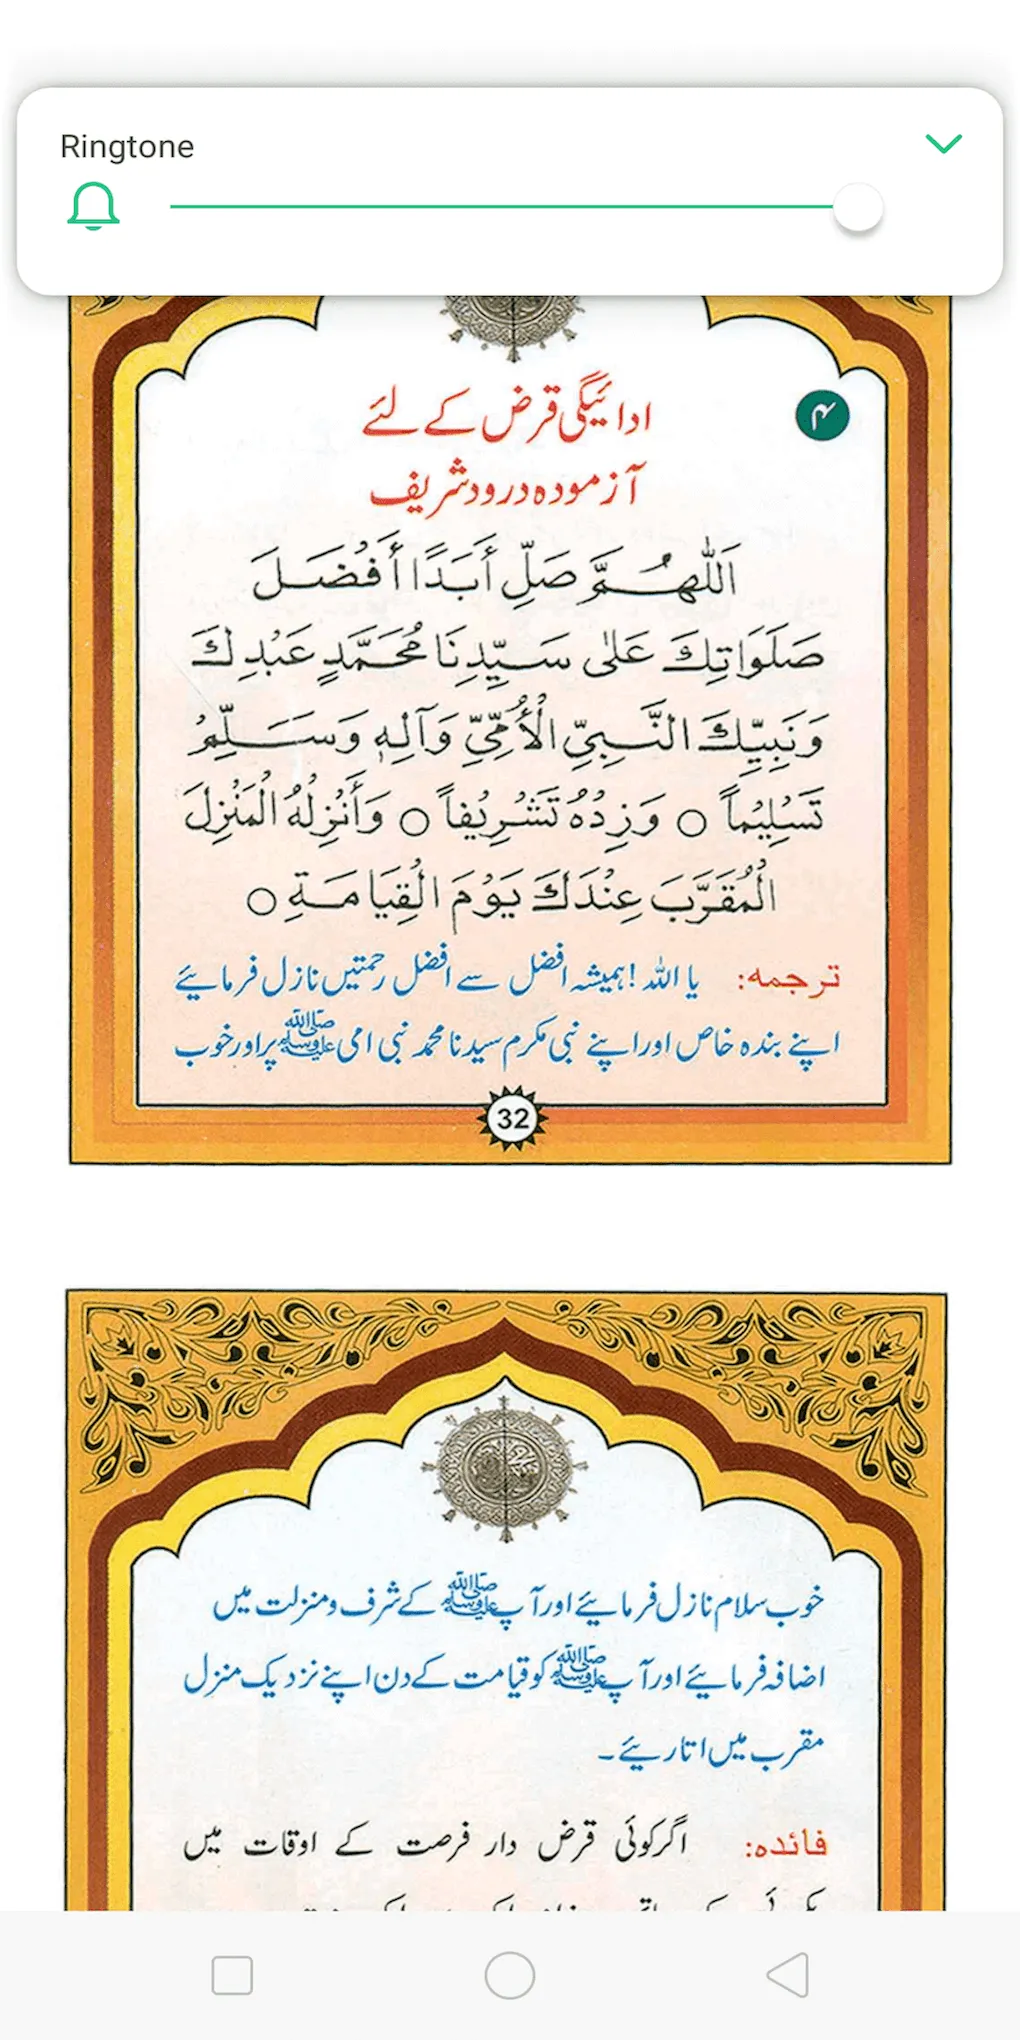 Ringtone
۴
ادائیگی قرض کے لئے
آزمودہ درود شریف
اَللّٰهُمَّ صَلِّ أَبَدًا أَفْضَلَ
صَلَوَاتِكَ عَلٰى سَيِّدِنَا مُحَمَّدٍ عَبْدِكَ
وَنَبِيِّكَ النَّبِيِّ الْأُمِّيِّ وَآلِهٖ وَسَلِّمْ
تَسْلِيْماً ○ وَزِدْهُ تَشْرِيْفاً ○ وَأَنْزِلْهُ الْمَنْزِلَ
الْمُقَرَّبَ عِنْدَكَ يَوْمَ الْقِيَامَةِ ○
ترجمہ: یا اللہ! ہمیشہ افضل سے افضل رحمتیں نازل فرمائیے
اپنے بندہ خاص اور اپنے نبی مکرم سیدنا محمد نبی امی ﷺ پر اور خوب
32
خوب سلام نازل فرمائیے اور آپ ﷺ کے شرف و منزلت میں
اضافہ فرمائیے اور آپ ﷺ کو قیامت کے دن اپنے نزدیک منزل
مقرب میں اتاریئے۔
فائدہ: اگر کوئی قرض دار فرصت کے اوقات میں